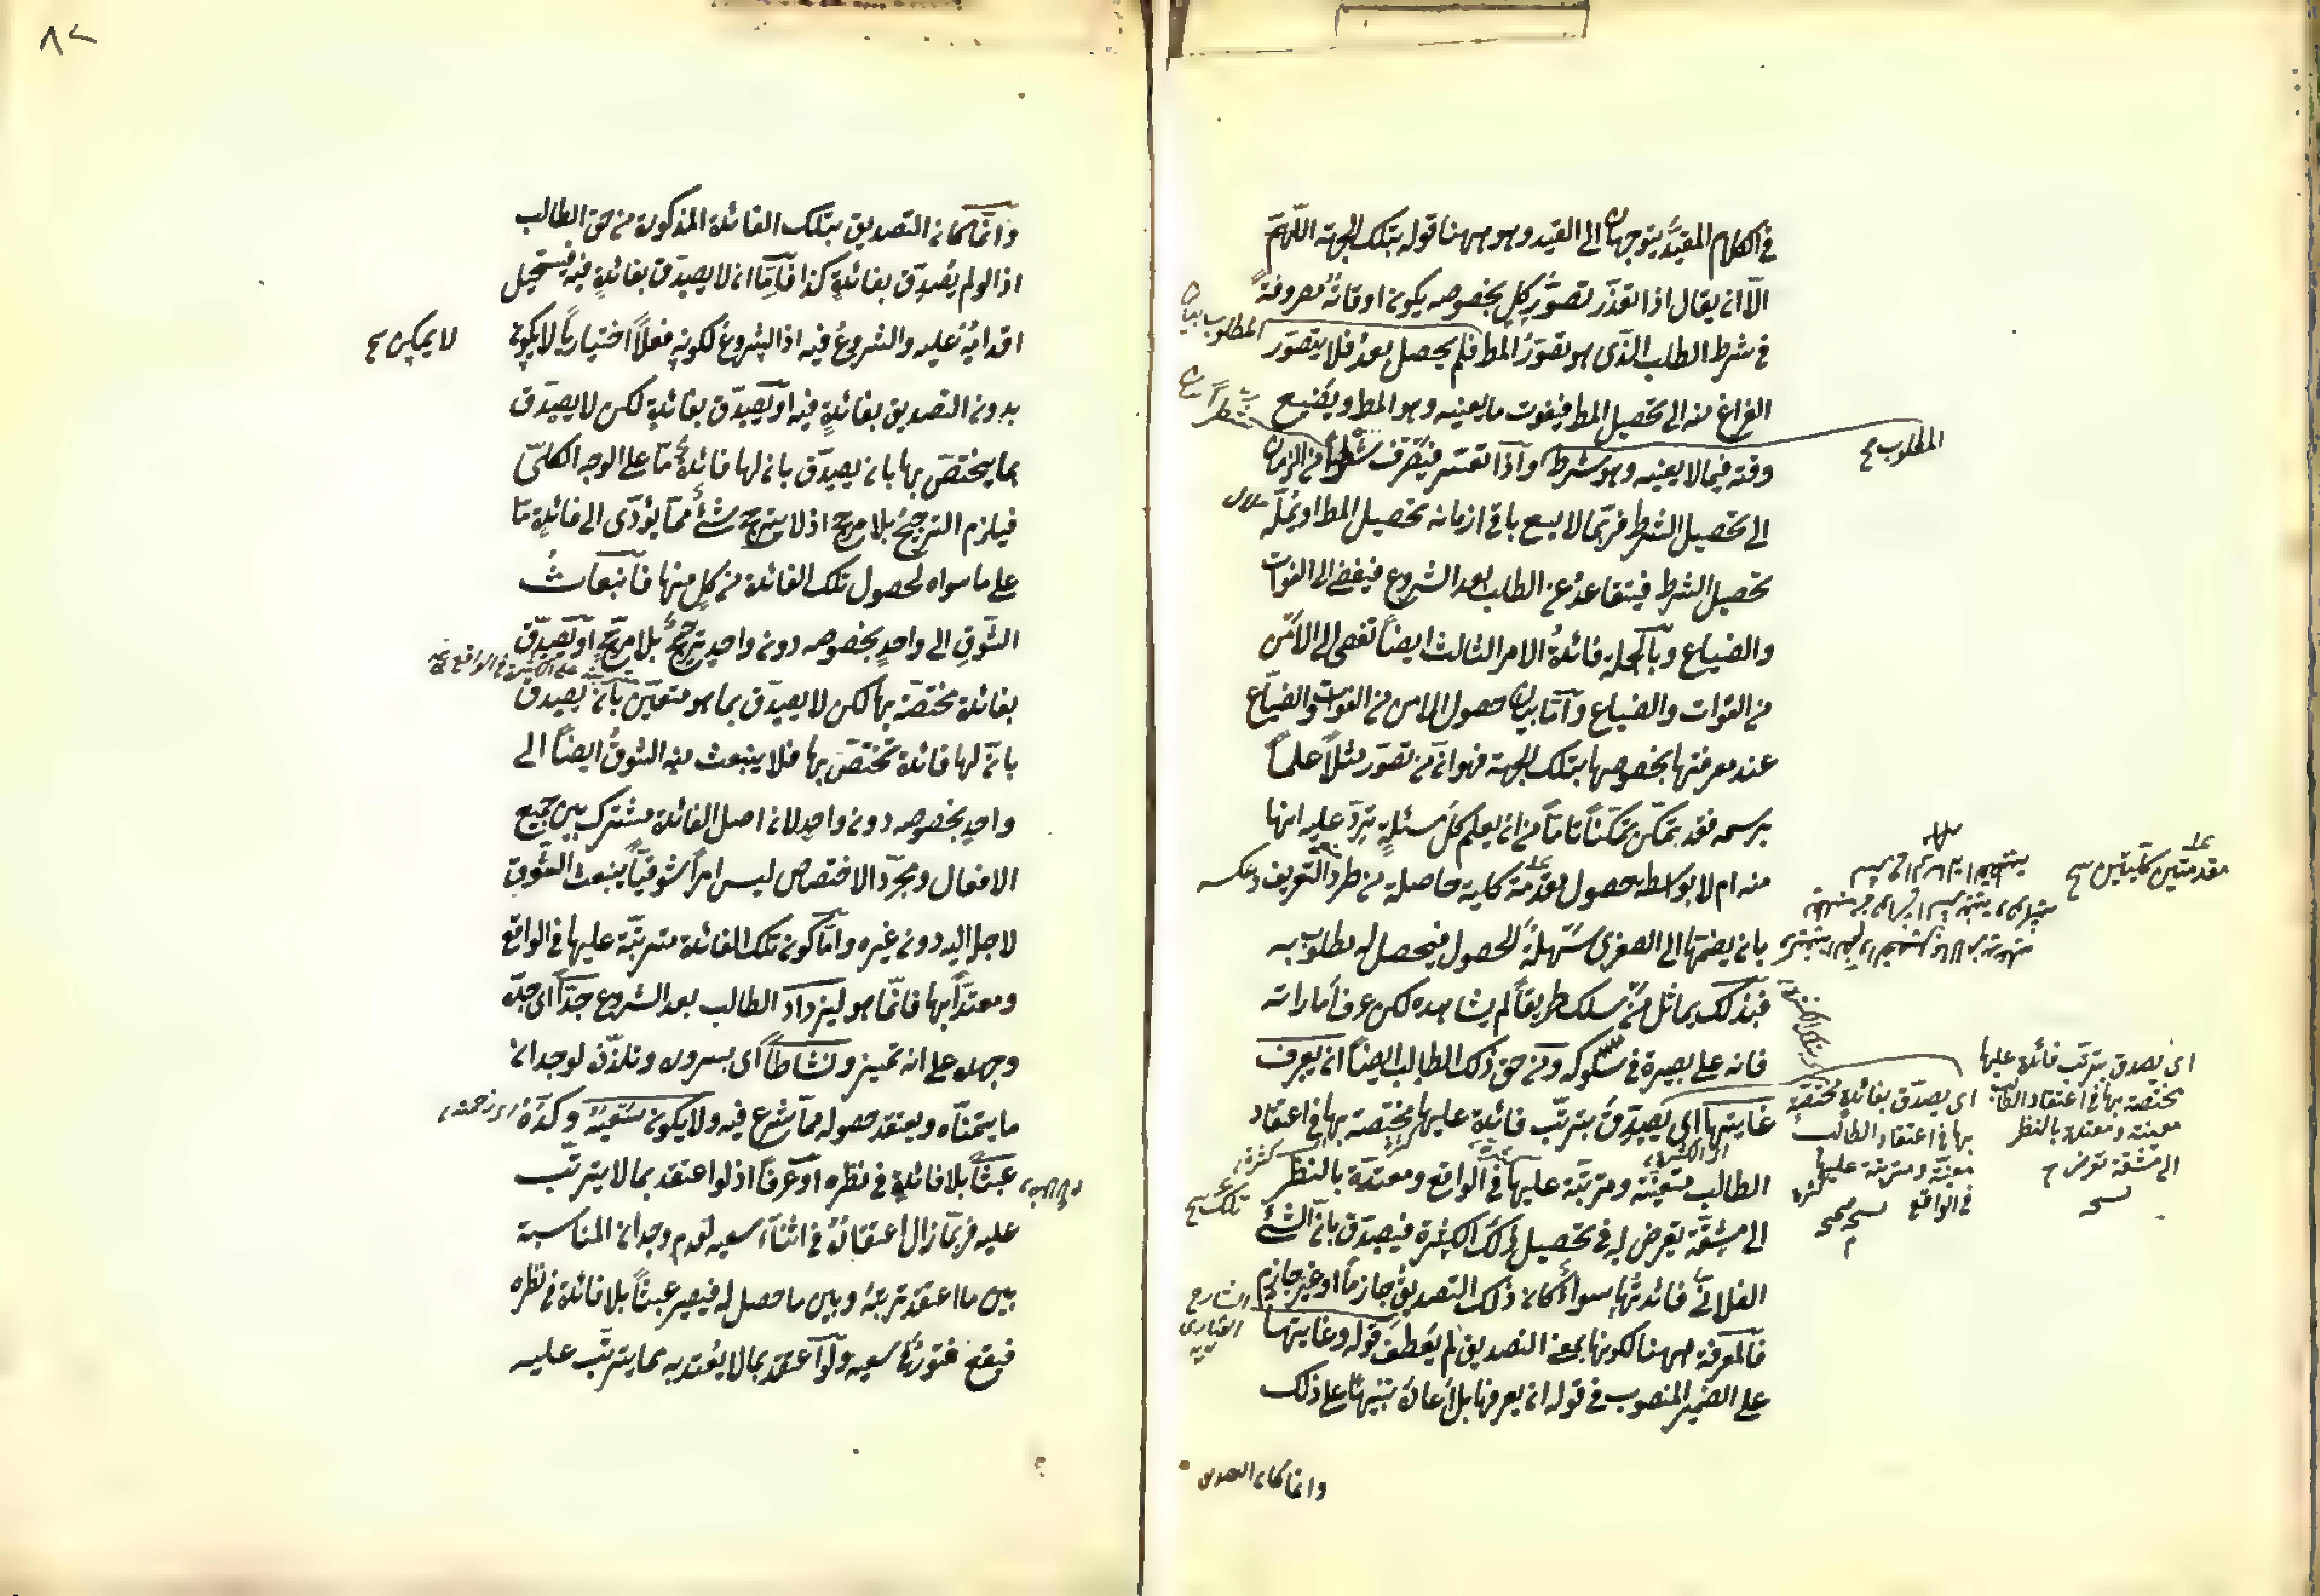 في الكلام المقيد يتوجهان الى القيد وهو ههنا قوله بتلك الجهة اللهم
الا ان يقال اذا تعذر تصور كل بخصوصه يكون اوقاته مصروفة
في شرط الطلب الذى هو تصور المط فلم يحصل بعد فلا يتصور
الفراغ منه الى تحصيل المط فيفوت ما يعنيه وهو المط ويضيع
وقته فيما لا يعنيه وهو شرط واذا تعسر فيصرف شطرا من الزمان
الى تحصيل الشرط فربما لا يسع باقى ازمانه تحصيل المط او يمله
تحصيل الشرط فيتقاعد عن الطلب بعد الشروع فيفضى الى الفوات
والضياع وبالجملة فائدة الامر الثالث ايضا تفضى الى الامن
من الفوات والضياع واما بيان حصول الامن من الفوت والضياع
عند معرفتها بخصوصها بتلك الجهة فهو ان من تصور مثلا علما
برسمه فقد تمكن تمكنا تاما من ان يعلم كل مسئلة ترد عليه انها
منه ام لا بواسطة حصول مقدمة كلية حاصلة من طرد التعريف وعكسه
بان يضمها الى الصغرى سهلة الحصول فيحصل له مطلوبه
فبذلك يماثل من سلك طريقا لم يشاهده لكن عرف اماراته
فانه على بصيرة في سلوكه ومن حق ذلك الطالب ايضا ان يعرف
غايتها اى يصدق بترتب فائدة عليها مختصة بها في اعتقاد
الطالب متعينة ومترتبة عليها في الواقع ومعتدة بالنظر
الى مشقة تعرض له في تحصيل تلك الكثرة فيصدق بان الشئ
الفلانى فائدتها سواء كان ذلك التصديق جازما او غير جازم
فالمعرفة ههنا لكونها بمعنى التصديق لم يعطف قوله وغايتها
على الضمير المنصوب في قوله ان يعرفها بل اعاده تنبيها على ذلك
وانما كان التصديق
المطلوب بيان
المطلوب صح
مقدمتين كليتين صح
اى يصدق بترتب فائدة عليها
مختصة بها في اعتقاد الطالب
معينة ومعتدة بالنظر
الى مشقة تعرض م
نسخه
اى يصدق بفائدة مختصة
بها في اعتقاد الطالب
معينة ومترتبة عليها
في الواقع نسخه صح
تلك صح
الشارح
وانما كان التصديق بتلك الفائدة المذكورة من حق الطالب
اذ لو لم يصدق بفائدة كذا فاما ان لا يصدق بفائدة فيه فيستحيل
اقدامه عليه والشروع فيه اذ الشروع لكونه فعلا اختياريا لا يكون
لا يمكن صح
بدون التصديق بفائدة فيه او يصدق بفائدة لكن لا يصدق
بما يختص بها بان يصدق بان لها فائدة ما على الوجه الكلى
فيلزم الترجيح بلا مرجح اذ لا يترجح شئ مما يؤدى الى فائدة ما
على ما سواه لحصول تلك الفائدة من كل منها فانبعاث
الشوق الى واحد بخصوصه دون واحد ترجيح بلا مرجح او يصدق
بفائدة مختصة بها لكن لا يصدق بما هو متعين بان يصدق
بان لها فائدة تختص بها فلا ينبعث منه الشوق ايضا الى
واحد بخصوصه دون واحد لان اصل الفائدة مشترك بين جميع
الافعال ومجرد الاختصاص ليس امرا شوقيا ينبعث الشوق
لاجله اليه دون غيره واما كون تلك الفائدة مترتبة عليها في الواقع
ومعتدا بها فانما هو ليزداد الطالب بعد الشروع جدا اى جده
وجهده على انه تميز ونشاطا اى بسروره وتلذذ لوجدان
ما يتمناه ويعتقد حصوله مما شرع فيه ولا يكون سعيه وكده
عبثا بلا فائدة في نظره او عرفا اذ لو اعتقد بما لا يترتب
عليه فربما زال اعتقاده في اثناء سعيه لعدم وجدان المناسبة
بين ما اعتقد ترتبه وبين ما حصل له فيصير عبثا بلا فائدة في نظره
فيقع فتور في سعيه ولو اعتقد بما لا يعتد به مما يترتب عليه